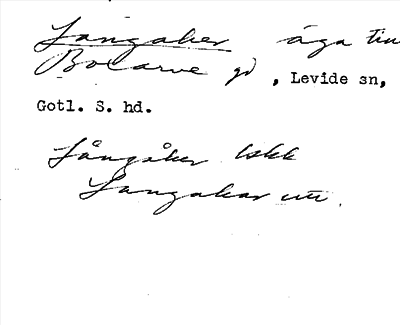 Långåker äga till
Bolarve gd, Levide sn,
Gotl. S. hd.
Långåker
Langakar utt.